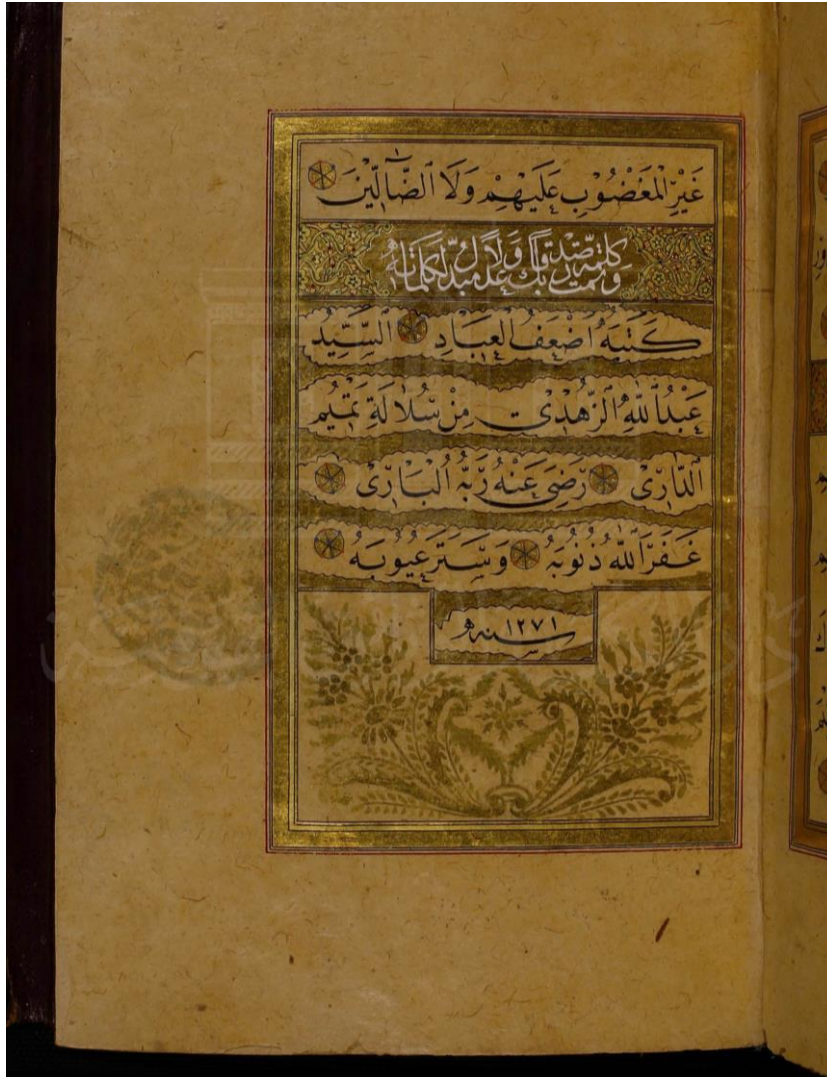 غَيْرِ الْمَغْضُوبِ عَلَيْهِمْ وَلَا الضَّالِّينَ
وتمت كلمة ربك صدقا وعدلا لا مبدل لكلماته
كَتَبَهُ اَضْعَفُ الْعِبَادِ السَّيِّدُ
عَبْدُ اللهِ الزُّهْدِى مِنْ سُلَالَةِ تَمِيمِ
الدَّارِىّ رَضِىَ عَنْهُ رَبُّهُ الْبَارِى
غَفَرَ اللهُ ذُنُوبَهُ وَسَتَرَ عُيُوبَهُ
سنه ١٢٧١ ه